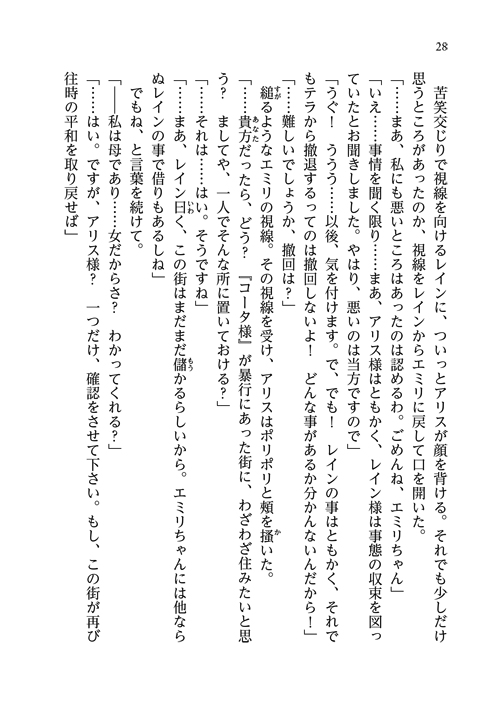 28
苦笑交じりで視線を向けるレインに、ついっとアリスが顔を背ける。それでも少しだけ
思うところがあったのか、視線をレインからエミリに戻して口を開いた。
「……まあ、私にも悪いところはあったのは認めるわ。ごめんね、エミリちゃん」
「いえ……事情を聞く限り……まあ、アリス様はともかく、レイン様は事態の収束を図っ
ていたとお聞きしました。やはり、悪いのは当方ですので」
「うぐ！　ううう……以後、気を付けます。で、でも！　レインの事はともかく、それで
もテラから撤退するってのは撤回しないよ！　どんな事があるか分かんないんだから！」
「……難しいでしょうか、撤回は？」
縋るようなエミリの視線。その視線を受け、アリスはポリポリと頬を掻いた。
「……貴方だったら、どう？　『コータ様』が暴行にあった街に、わざわざ住みたいと思
う？　ましてや、一人でそんな所に置いておける？」
「……それは……はい。そうですね」
「……まあ、レイン曰く、この街はまだまだ儲かるらしいから。エミリちゃんには他なら
ぬレインの事で借りもあるしね」
でもね、と言葉を続けて。
「――私は母であり……女だからさ？　わかってくれる？」
「……はい。ですが、アリス様？　一つだけ、確認をさせて下さい。もし、この街が再び
往時の平和を取り戻せば」